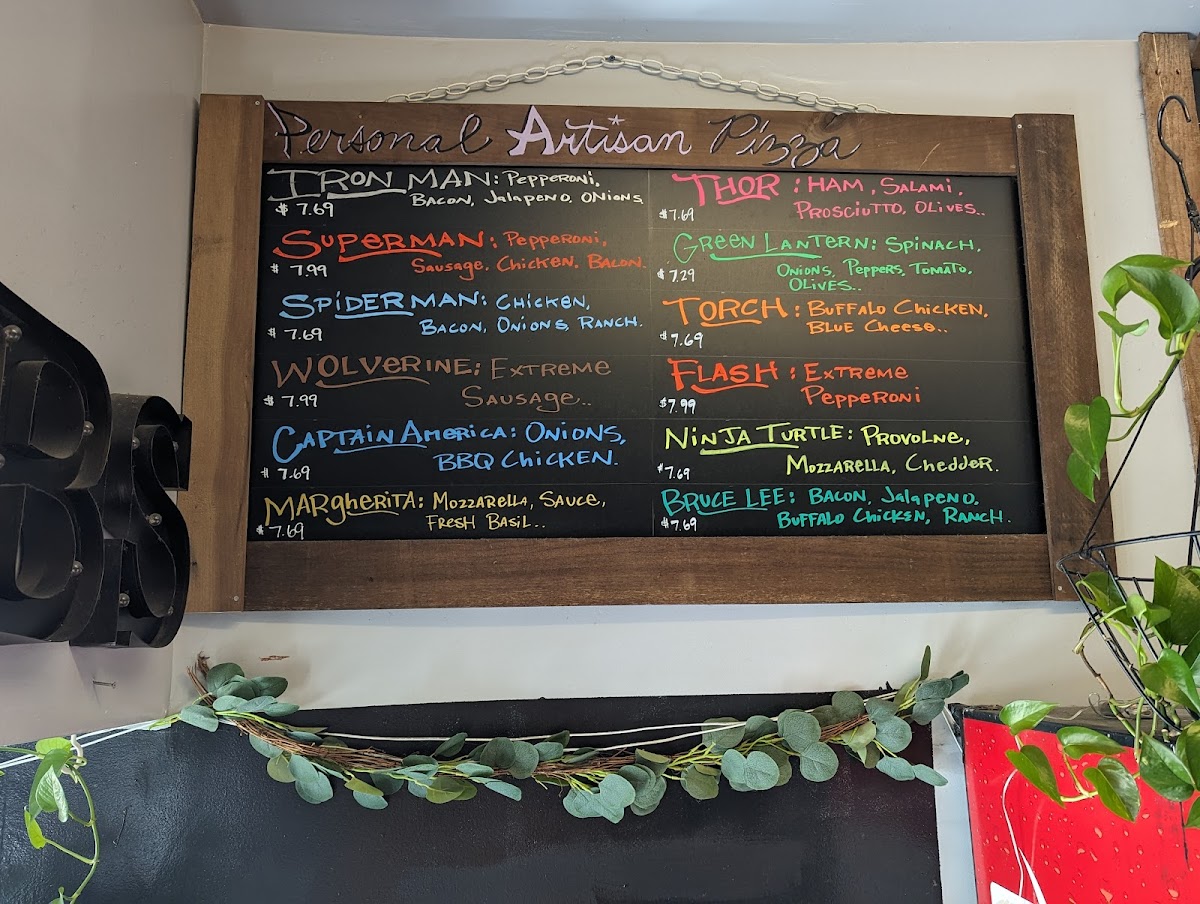 Personal Artisan Pizza
IRON MAN: Pepperoni,
BACON, Jalapeno, Onions
$ 7.69
SUPERMAN: Pepperoni,
Sausage, Chicken, Bacon.
$ 7.99
SPIDERMAN: Chicken,
Bacon, Onions, Ranch.
$ 7.69
WOLVERINE: Extreme
Sausage..
$ 7.99
CAPTAIN AMERICA: Onions,
BBQ Chicken.
$ 7.69
MARgherita: Mozzarella, Sauce,
Fresh Basil..
$ 7.69
THOR: Ham, Salami,
Prosciutto, Olives..
$7.69
GREEN LANTERN: Spinach,
Onions, Peppers, Tomato,
Olives..
$7.29
TORCH: Buffalo Chicken,
Blue Cheese..
$7.69
FLASH: Extreme
Pepperoni
$7.99
NINJA TURTLE: Provolne,
Mozzarella, Chedder.
$7.69
BRUCE LEE: Bacon, Jalapeno,
Buffalo Chicken, Ranch.
$7.69